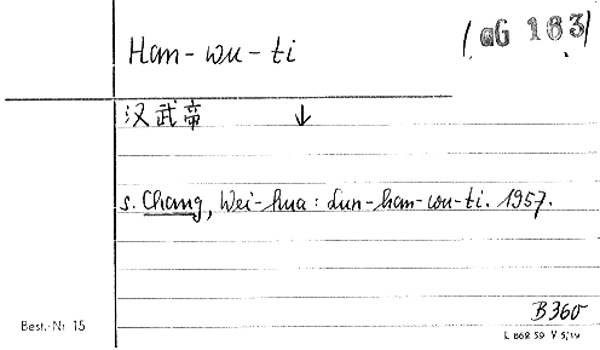 (aG 163)
Han-wu-ti
汉武帝 ↓
s. Chang, Wei-hua: Lun-han-wu-ti. 1957.
B 360
Best.-Nr. 15
L 868 59 V 5/19